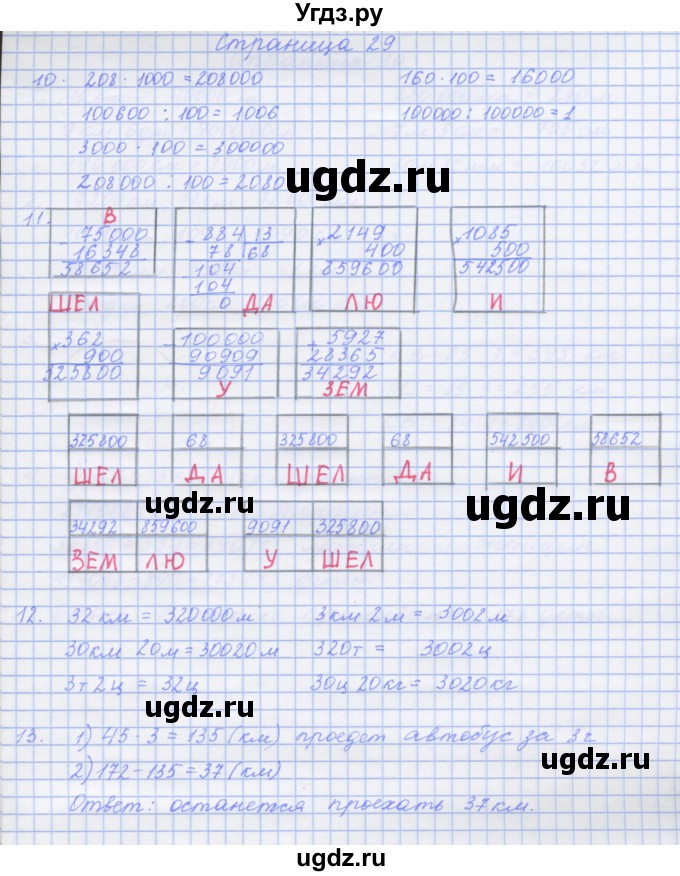 Угдз.ру
Страница 29
10. 208 · 1000 = 208000 160 · 100 = 16000
100600 : 100 = 1006 100000 : 100000 = 1
3000 · 100 = 300000
208000 : 100 = 2080
ugdz.ru
11.
В
75000
16348
58652
- 884 13
78 68
104
104
0
ДА
× 2149
400
859600
ЛЮ
× 1085
500
542500
И
ШЕЛ
× 362
900
325800
- 100000
90909
9091
У
+ 5927
28365
34292
ЗЕМ
325800 68 325800 68 542500 58652
ШЕЛ ДА ШЕЛ ДА И В
ugdz.ru ugdz.ru
34292 859600 9091 325800
ЗЕМ ЛЮ У ШЕЛ
12. 32 км = 320000 м 3 км 2 м = 3002 м
30 км 20 м = 30020 м 320 т = 3002 ц
3 т 2 ц = 32 ц 30 ц 20 кг = 3020 кг
ugdz.ru
13. 1) 45 · 3 = 135 (км) проедет автобус за 3 г
2) 172 - 135 = 37 (км)
Ответ: останется проехать 37 км.
ugdz.ru